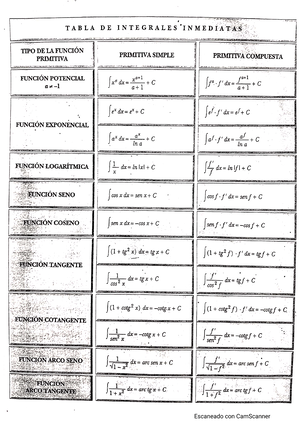 TABLA DE INTEGRALES INMEDIATAS
TIPO DE LA FUNCIÓN PRIMITIVA | PRIMITIVA SIMPLE | PRIMITIVA COMPUESTA
FUNCIÓN POTENCIAL a ≠ −1 | ∫xᵃ dx = xᵃ⁺¹/(a + 1) + C | ∫fᵃ · f' dx = fᵃ⁺¹/(a + 1) + C
FUNCIÓN EXPONENCIAL | ∫eˣ dx = eˣ + C | ∫eᶠ · f' dx = eᶠ + C
∫aˣ dx = aˣ/ln a + C | ∫aᶠ · f' dx = aᶠ/ln a + C
FUNCIÓN LOGARÍTMICA | ∫1/x dx = ln|x| + C | ∫f'/f dx = ln|f| + C
FUNCIÓN SENO | ∫cos x dx = sen x + C | ∫cos f · f' dx = sen f + C
FUNCIÓN COSENO | ∫sen x dx = −cos x + C | ∫sen f · f' dx = −cos f + C
FUNCIÓN TANGENTE | ∫(1 + tg² x) dx = tg x + C | ∫(1 + tg² f) · f' dx = tg f + C
∫1/cos² x dx = tg x + C | ∫f'/cos² f dx = tg f + C
FUNCIÓN COTANGENTE | ∫(1 + cotg² x) dx = −cotg x + C | ∫(1 + cotg² f) · f' dx = −cotg f + C
∫1/sen² x dx = −cotg x + C | ∫f'/sen² f dx = −cotg f + C
FUNCIÓN ARCO SENO | ∫1/√(1 − x²) dx = arc sen x + C | ∫f'/√(1 − f²) dx = arc sen f + C
FUNCIÓN ARCO TANGENTE | ∫1/(1 + x²) dx = arc tg x + C | ∫f'/(1 + f²) dx = arc tg f + C
Escaneado con CamScanner